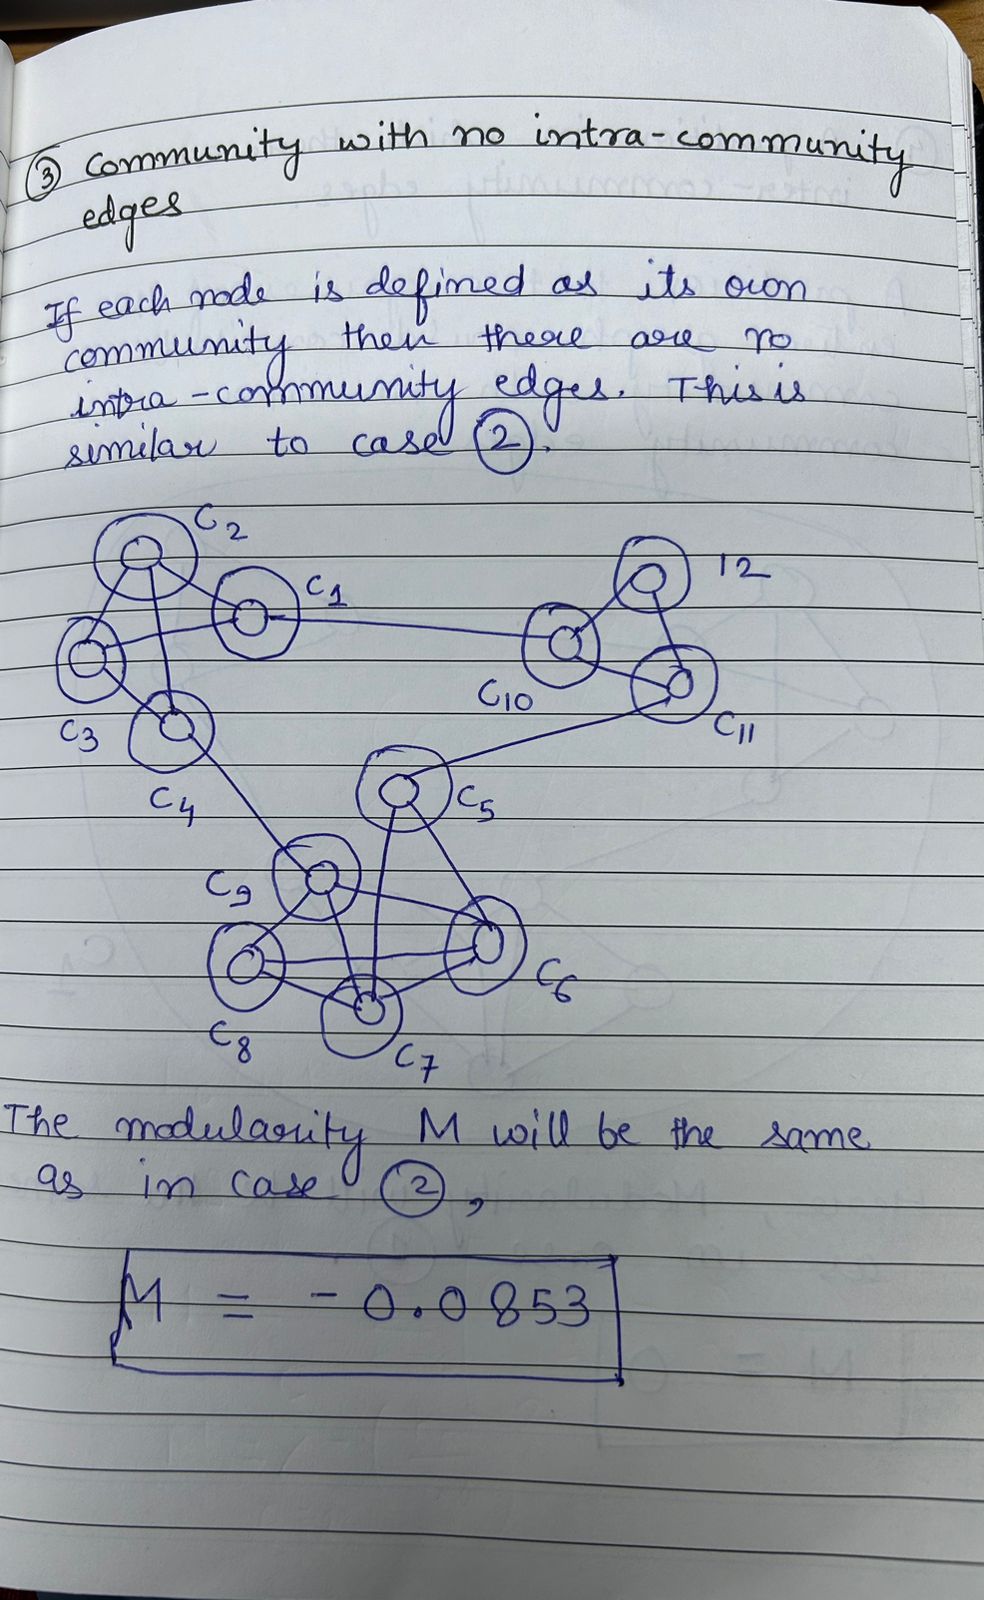 ③ Community with no intra-community
edges
If each node is defined as its own
community then there are no
intra-community edges. This is
similar to case ②.
C2
C1
12
C10
C3
C11
C4
C5
C9
C6
C8
C7
The modularity M will be the same
as in case ②,
M = - 0.0853